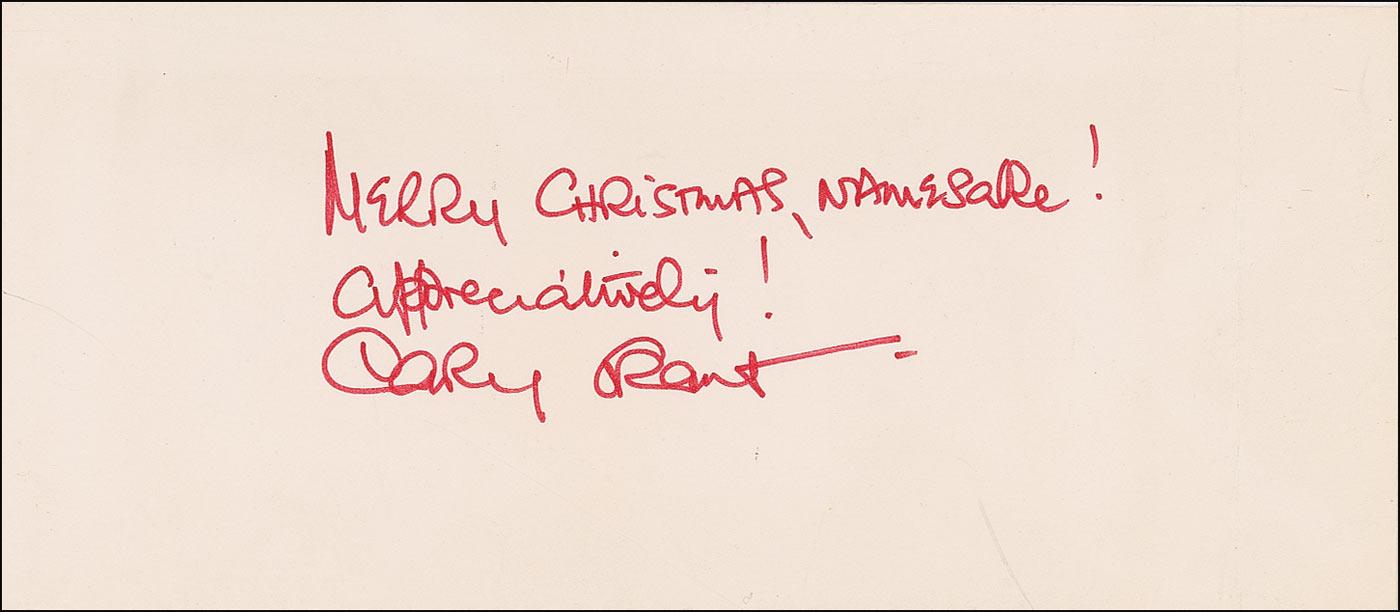 Merry Christmas, Namesake!
Appreciatively!
Cary Grant